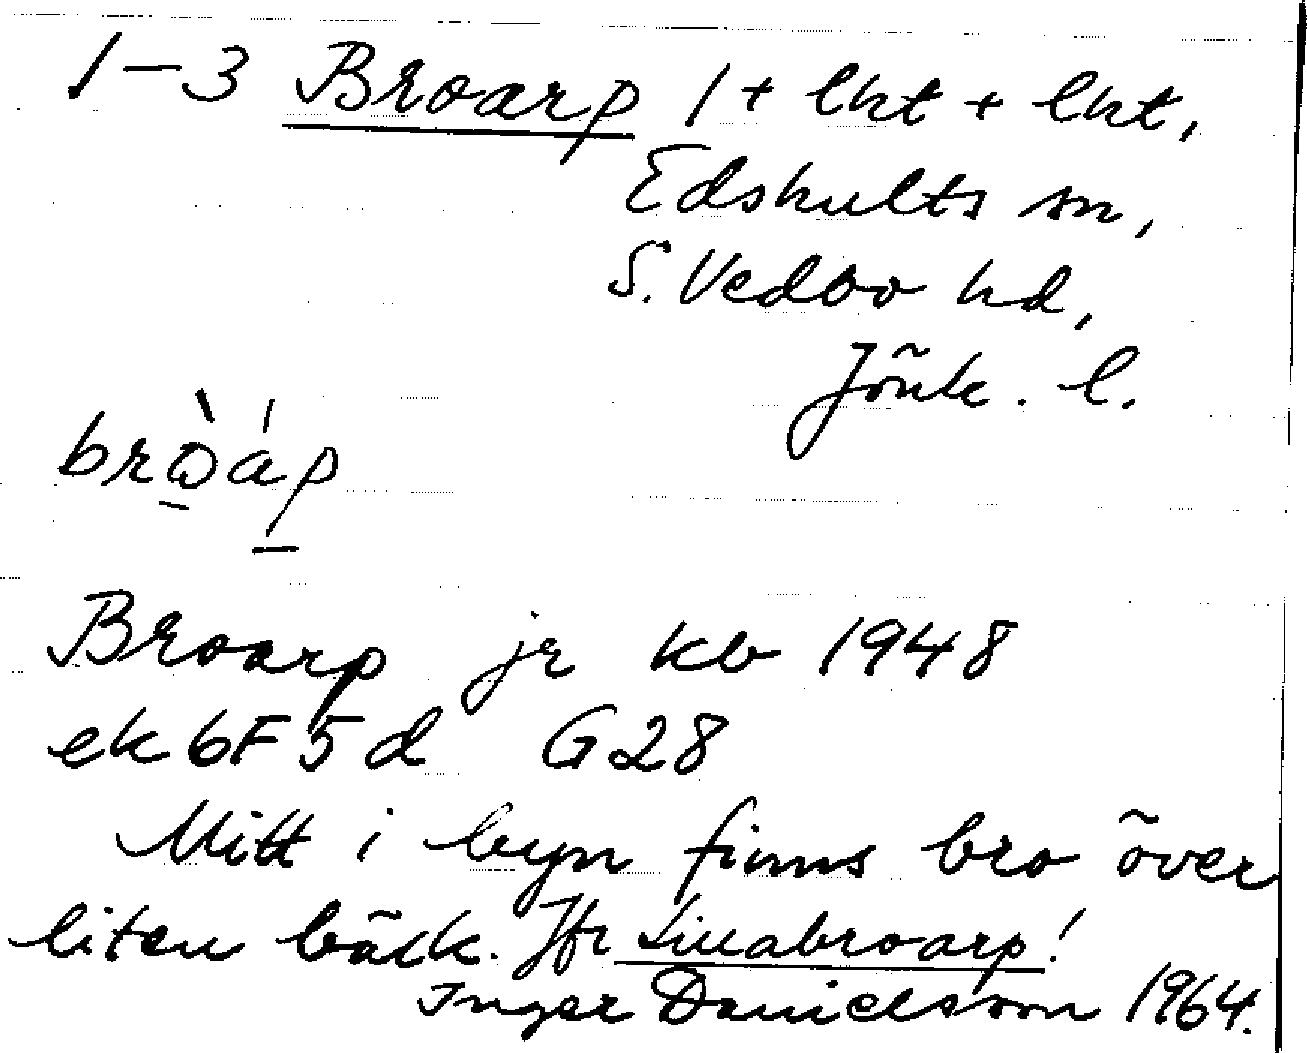 1-3 Broarp 1 + lht + lht,
Edshults sn,
S. Vedbo hd,
Jönk. l.
bròáp
Broarp jr kb 1948
ek 6F 5d G28
Mitt i byn finns bro över
liten bäck. Jfr Lillabroarp!
Inger Danielsson 1964.